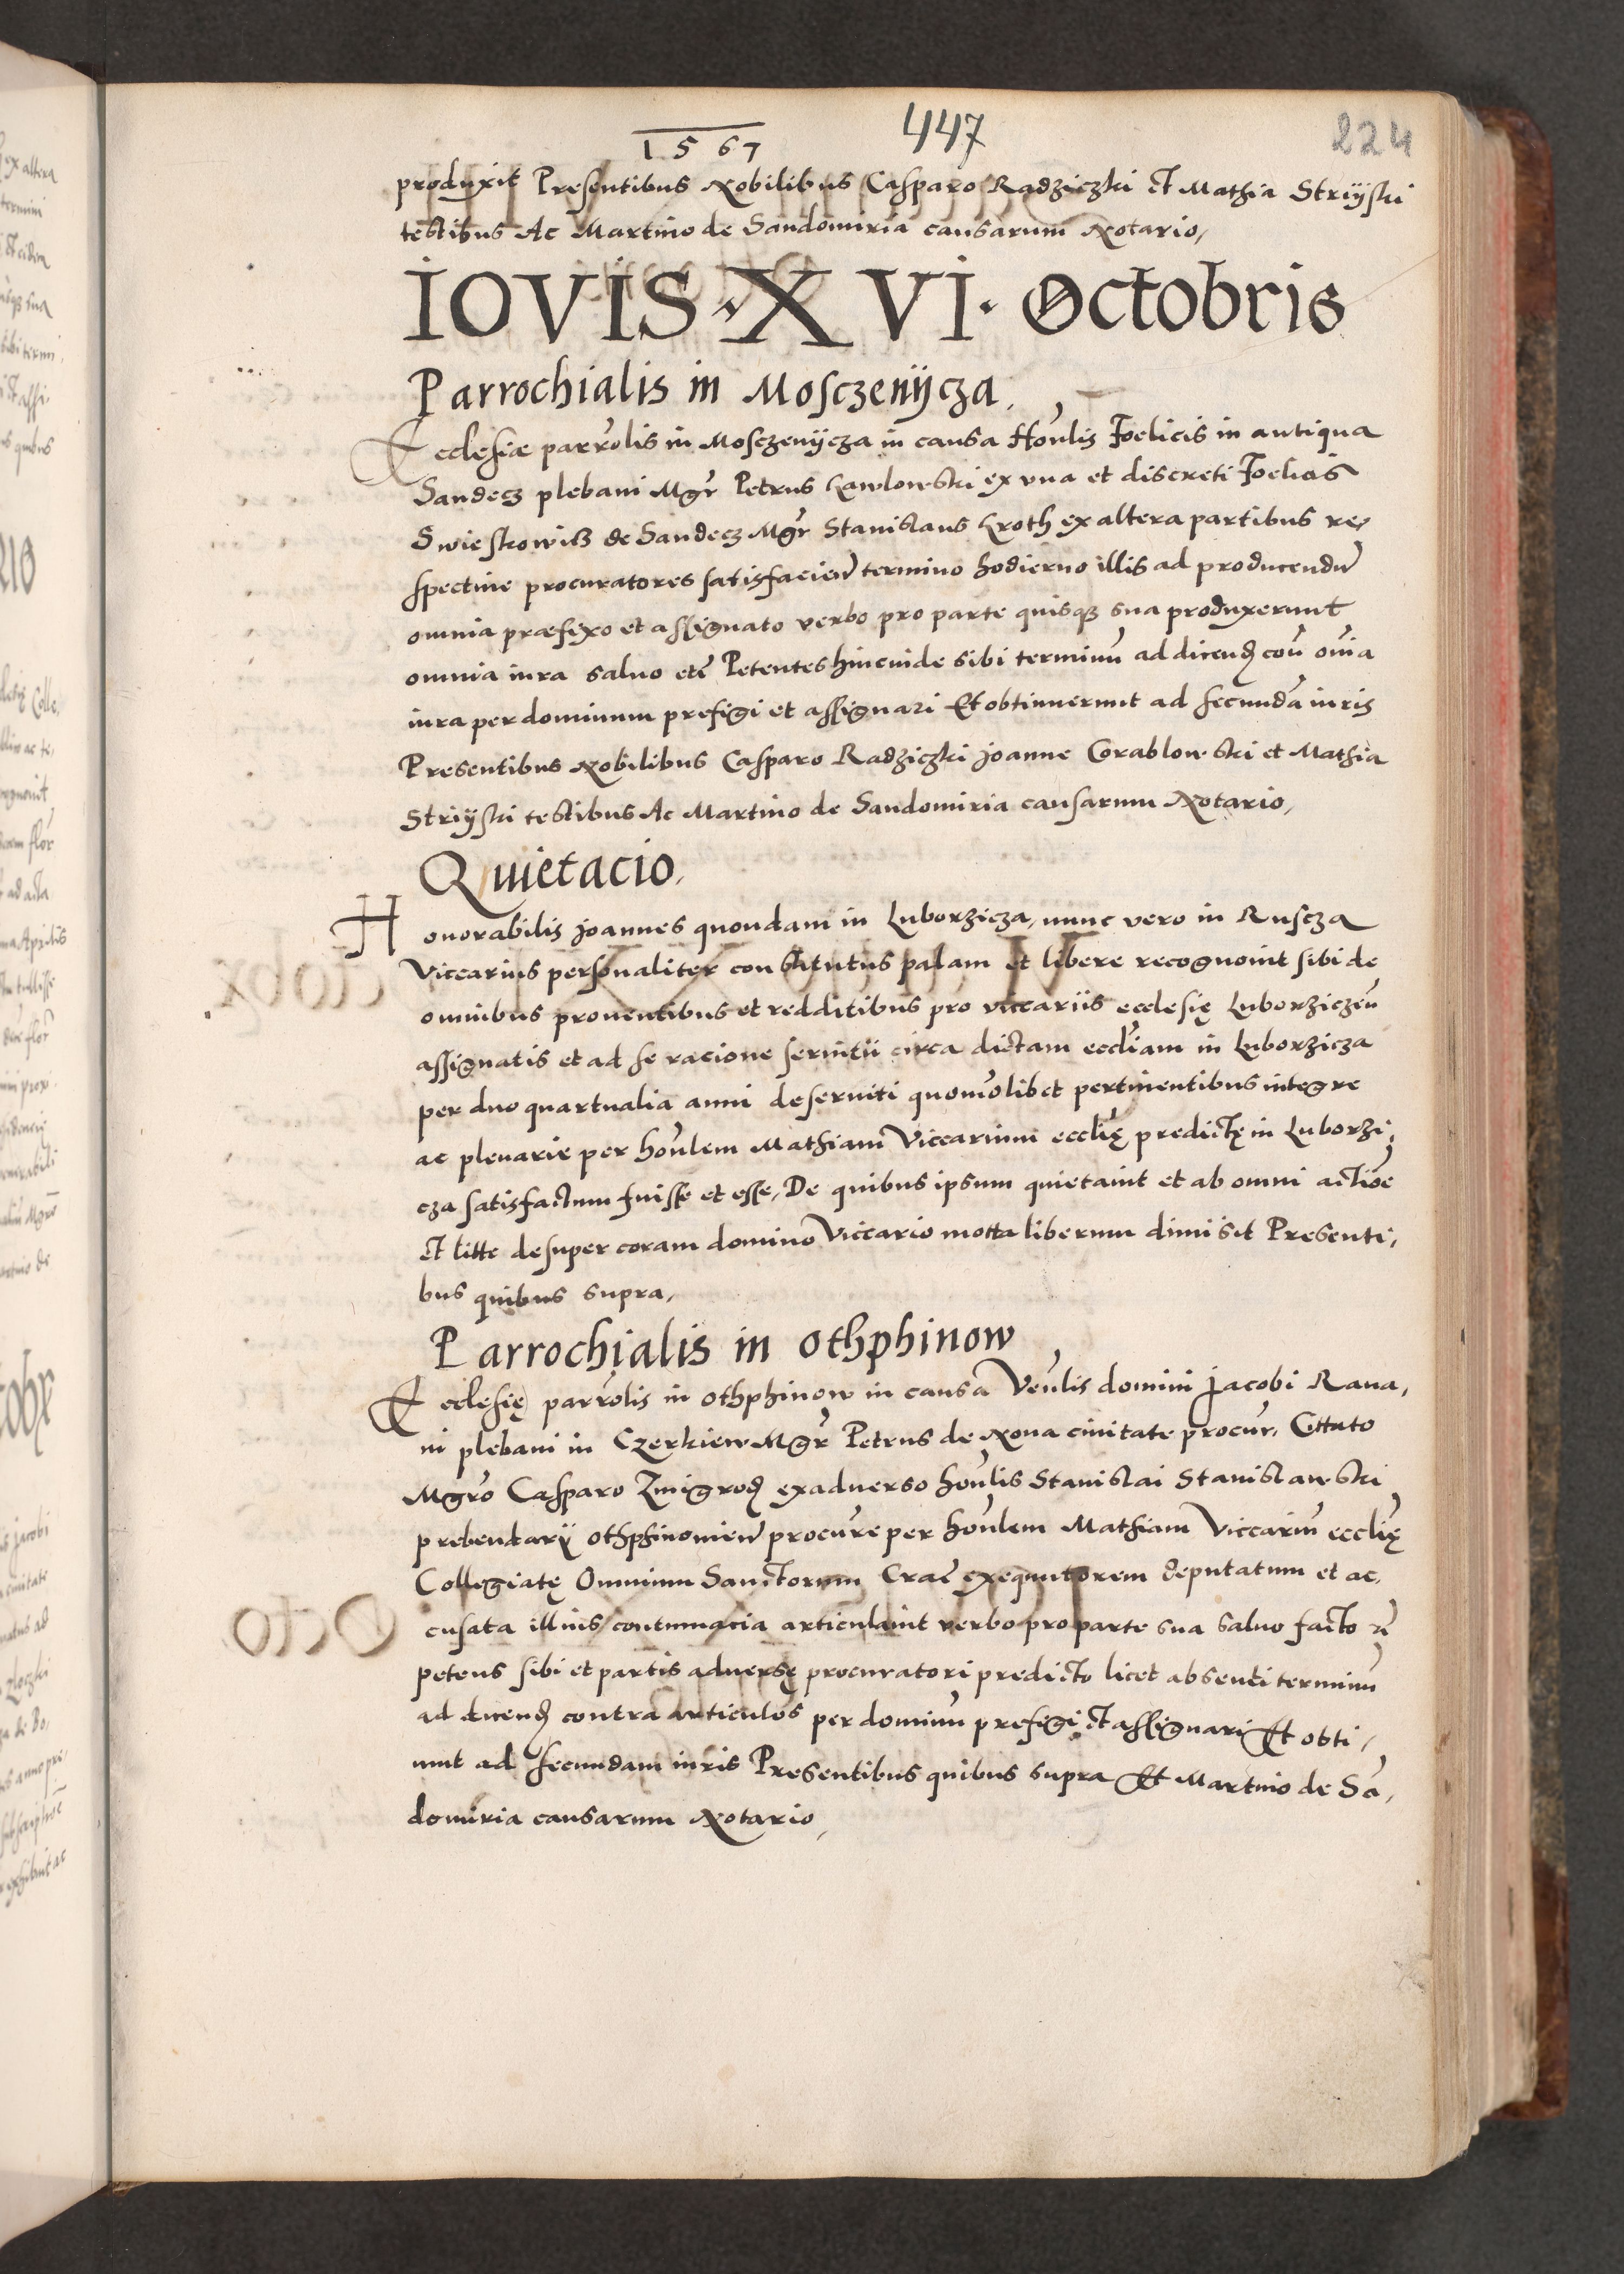 447
224
1567
produxit Presentibus Nobilibus Casparo Radziczki et Mathia Striiski
testibus Ac Martino de Sandomiria causarum Notario,
IOVIS · XVI · Octobris
Parrochialis in Mosczenijcza,
Ecclesiæ parrolis in Mosczenijcza in causa Honlis Foelicis in antiqua
Sandecz plebani Mgr Petrus Lawlowski ex vna et discreti Foelicis
Swieskowicz de Sandecz Mgr Stanislaus Kroth ex altera partibus re,
spectiue procuratores satisfacien termino hodierno illis ad producendu
omnia præfixo et assignato verbo pro parte quisq sua produxerunt
omnia iura saluo etc Petentes hincinde sibi terminu ad dicend con oia
iura per dominum prefigi et assignari Et obtinuerunt ad secunda iuris
Presentibus Nobilibus Casparo Radziczki Joanne Corablowski et Mathia
Striiski testibus Ac Martino de Sandomiria causarum Notario,
Quietacio,
Honorabilis Joannes quondam in Luborzicza, nunc vero in Ruscza
Viccarius personaliter constitutus palam et libere recognouit sibi de
omnibus prouentibus et redditibus pro viccariis ecclesię Luborziczen
assignatis et ad se racione seruitii circa dictam eccliam in Luborzicza
per duo quartualia anni deseruiti quomolibet pertinentibus integre
ac plenarie per honlem Mathiam Viccarium ecclię predictę in Luborzi,
cza satisfactum fuisse et esse, De quibus ipsum quietauit et ab omni actioe
et litte desuper coram domino Viccario motta liberum dimisit Presenti,
bus quibus supra,
Parrochialis in Othphinow
Ecclesię parrolis in Othphinow in causa Venlis domini Jacobi Raua,
ni plebani in Czerkiew Mgr Petrus de Noua ciuitate procur, Cittato
Mgro Casparo Zmigrod exaduerso honlis Stanislai Stanislawski
prebendarij Othphinouien procure per honlem Mathiam Viccariu ecclię
Collegiatę Omnium Sanctorum Crac exequutorem deputatum et ac,
cusata illius contumacia articulauit verbo pro parte sua saluo facto
petens sibi et partis aduersę procuratori predicto licet absenti terminu
ad dicend contra articulos per dominu prefigi et assignari Et obti,
nuit ad secundam iuris Presentibus quibus supra Et Martino de Sa,
domiria causarum Notario,